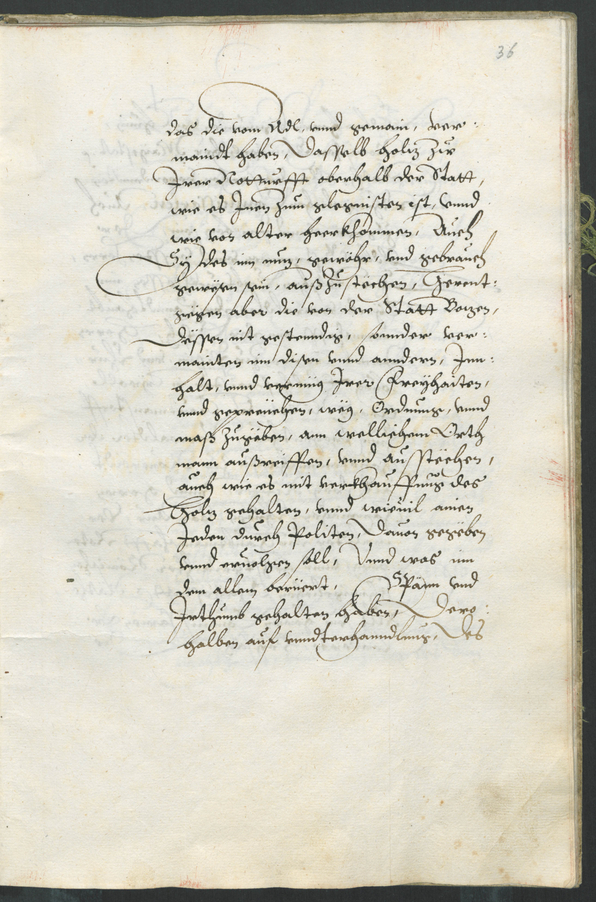 36
das die vom Adl, vnnd gemain, ver:
maindt haben, Dasselb holtz zu
Irer Notturfft oberhalb der Statt,
wie es Inen zum glegnisten ist, vnnd
wie von alter heerkhommen, Auch
Sy des inn nutz, gewöhr, vnd gebrauch
gewesen sein, auß zu stechen, Herent:
gegen aber die von der Statt Botzen,
Dessen nit gestenndig, sonnder ver:
mainten inn disen vnnd anndern, Inn:
halt, vnnd vermüg Irer Freyhaiten,
vnnd gepreüchen, weg, Ordnung, vnnd
maß zugeben, am wellichem Orth
mann außreiffen, vnnd ausstechen,
auch wie es mit verkhauffung des
Holtz gehalten, vnnd wieuil ainen
Jeden durch Politen, Dauon gegeben
vnnd eruolgen soll, Vnnd was inn
dem allem berüert, Spänn vnd
Irthumb gehalten haben, Dero:
halben auf vnndterhanndlung, Des